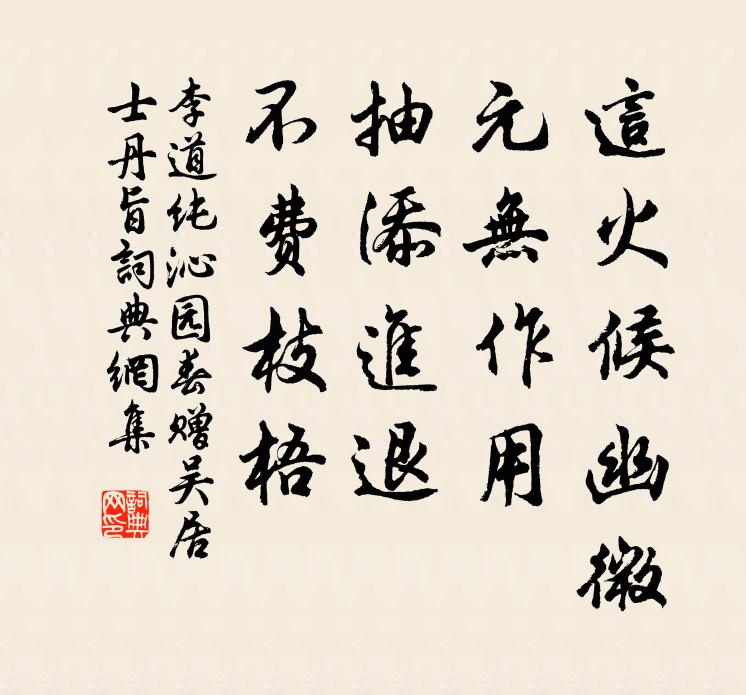 這火候幽微
元無作用
抽添進退
不費枝梧
李道纯沁园春赠吴居
士丹旨詞典網集
詞典
网印